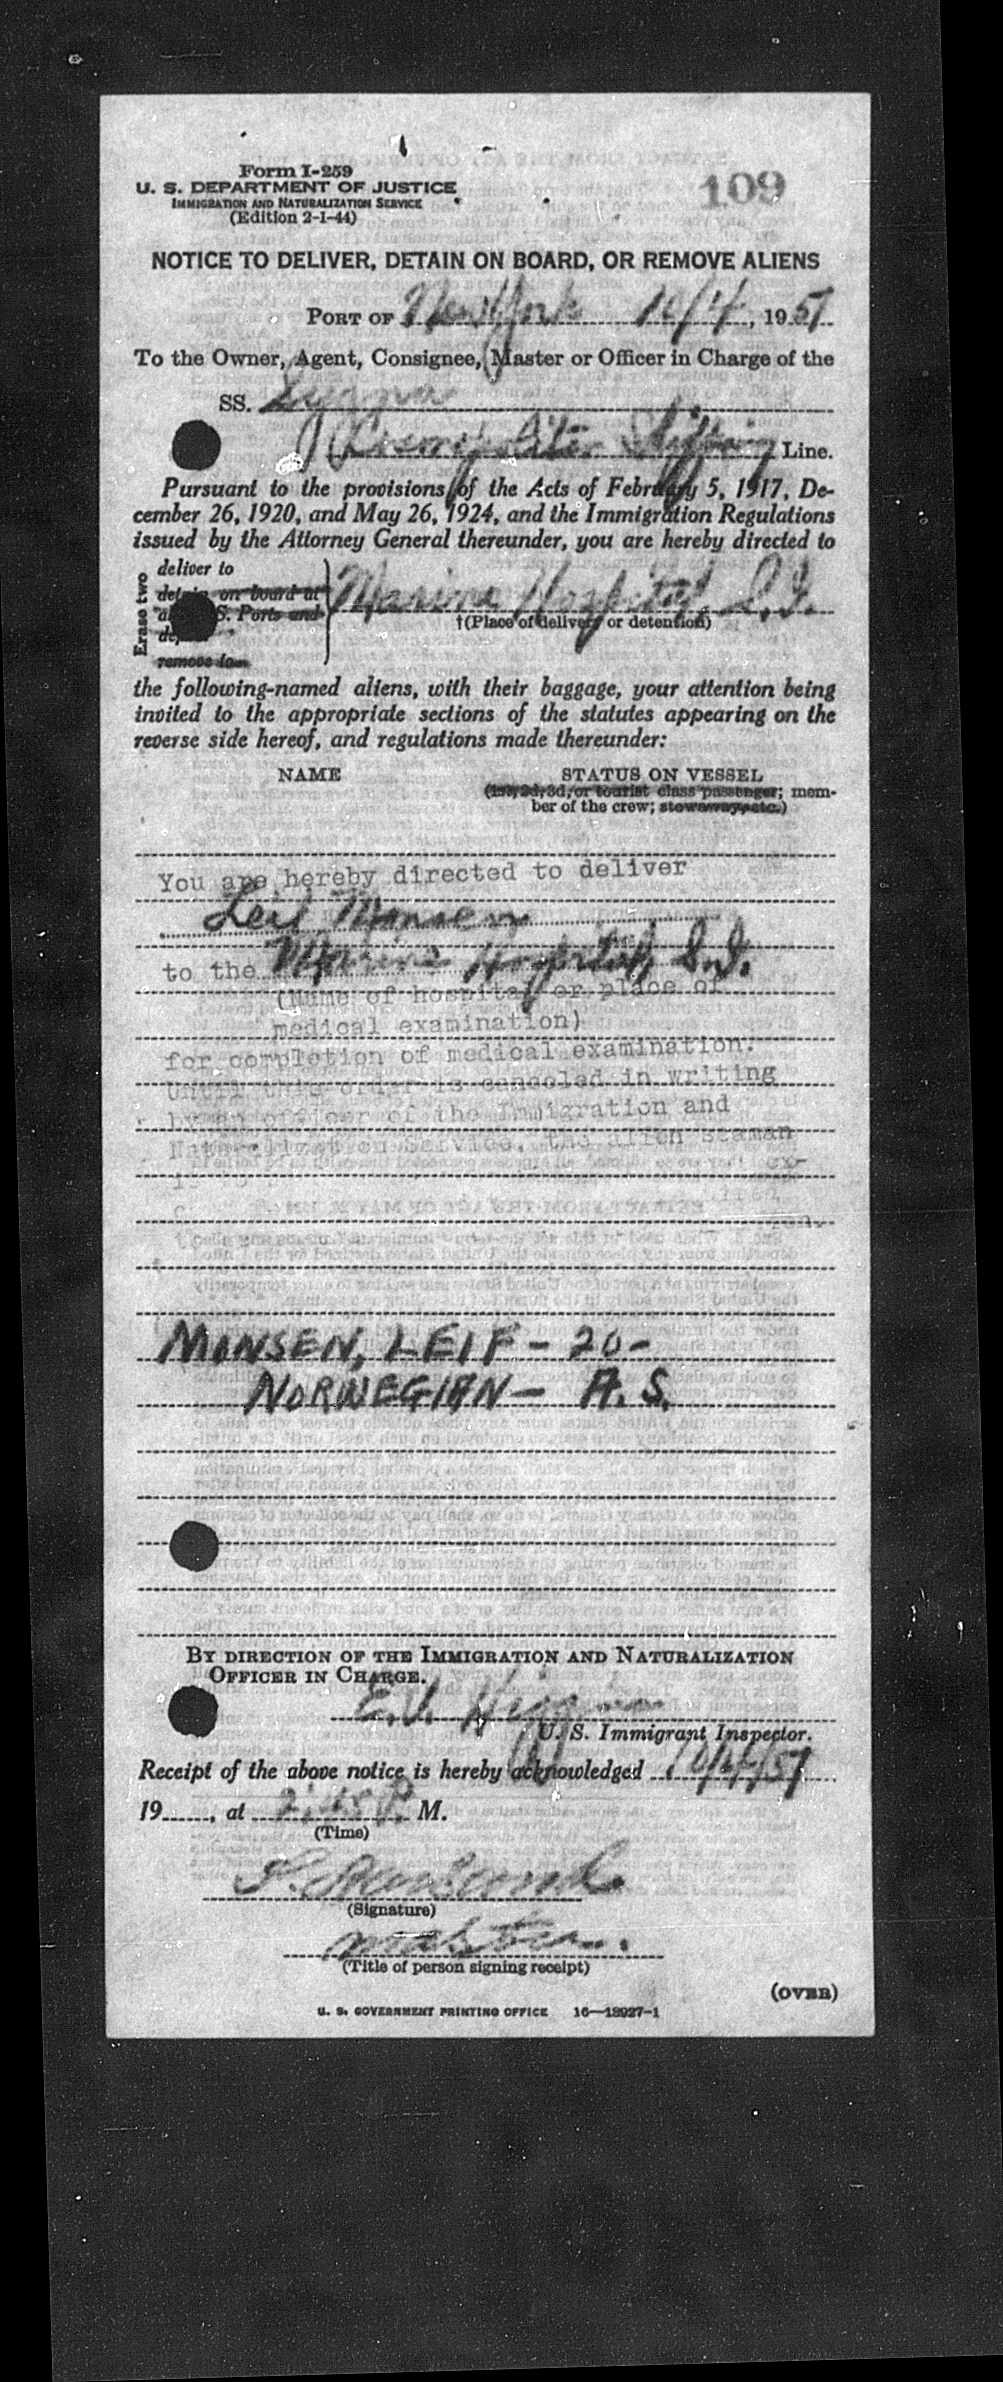 Form I-259
U. S. DEPARTMENT OF JUSTICE
IMMIGRATION AND NATURALIZATION SERVICE
(Edition 2-1-44)
109
NOTICE TO DELIVER, DETAIN ON BOARD, OR REMOVE ALIENS
PORT OF New York 10/4, 1951
To the Owner, Agent, Consignee, Master or Officer in Charge of the
SS.
Cosmopolitan Shipping Line.
Pursuant to the provisions of the Acts of February 5, 1917, De-
cember 26, 1920, and May 26, 1924, and the Immigration Regulations
issued by the Attorney General thereunder, you are hereby directed to
Erase two
deliver to
detain on board at
S. Ports and
remove to
Marine Hospital S.I.
†(Place of delivery or detention)
the following-named aliens, with their baggage, your attention being
invited to the appropriate sections of the statutes appearing on the
reverse side hereof, and regulations made thereunder:
NAME STATUS ON VESSEL
(1st, 2d, 3d, or tourist class passenger; mem-
ber of the crew; stowaway, etc.)
You are hereby directed to deliver
Leif Monsen
to the Marine Hospital, S.I.
(Name of hospital or place of
medical examination)
for completion of medical examination.
Until this order is canceled in writing
by an officer of the Immigration and
Naturalization Service, the alien seaman
MONSEN, LEIF - 20 -
NORWEGIAN - A. S.
BY DIRECTION OF THE IMMIGRATION AND NATURALIZATION
OFFICER IN CHARGE.
E.V.
U. S. Immigrant Inspector.
Receipt of the above notice is hereby acknowledged 10/4/51
19, at 2:45 P. M.
(Time)
(Signature)
master.
(Title of person signing receipt)
(OVER)
U. S. GOVERNMENT PRINTING OFFICE 16—18927-1